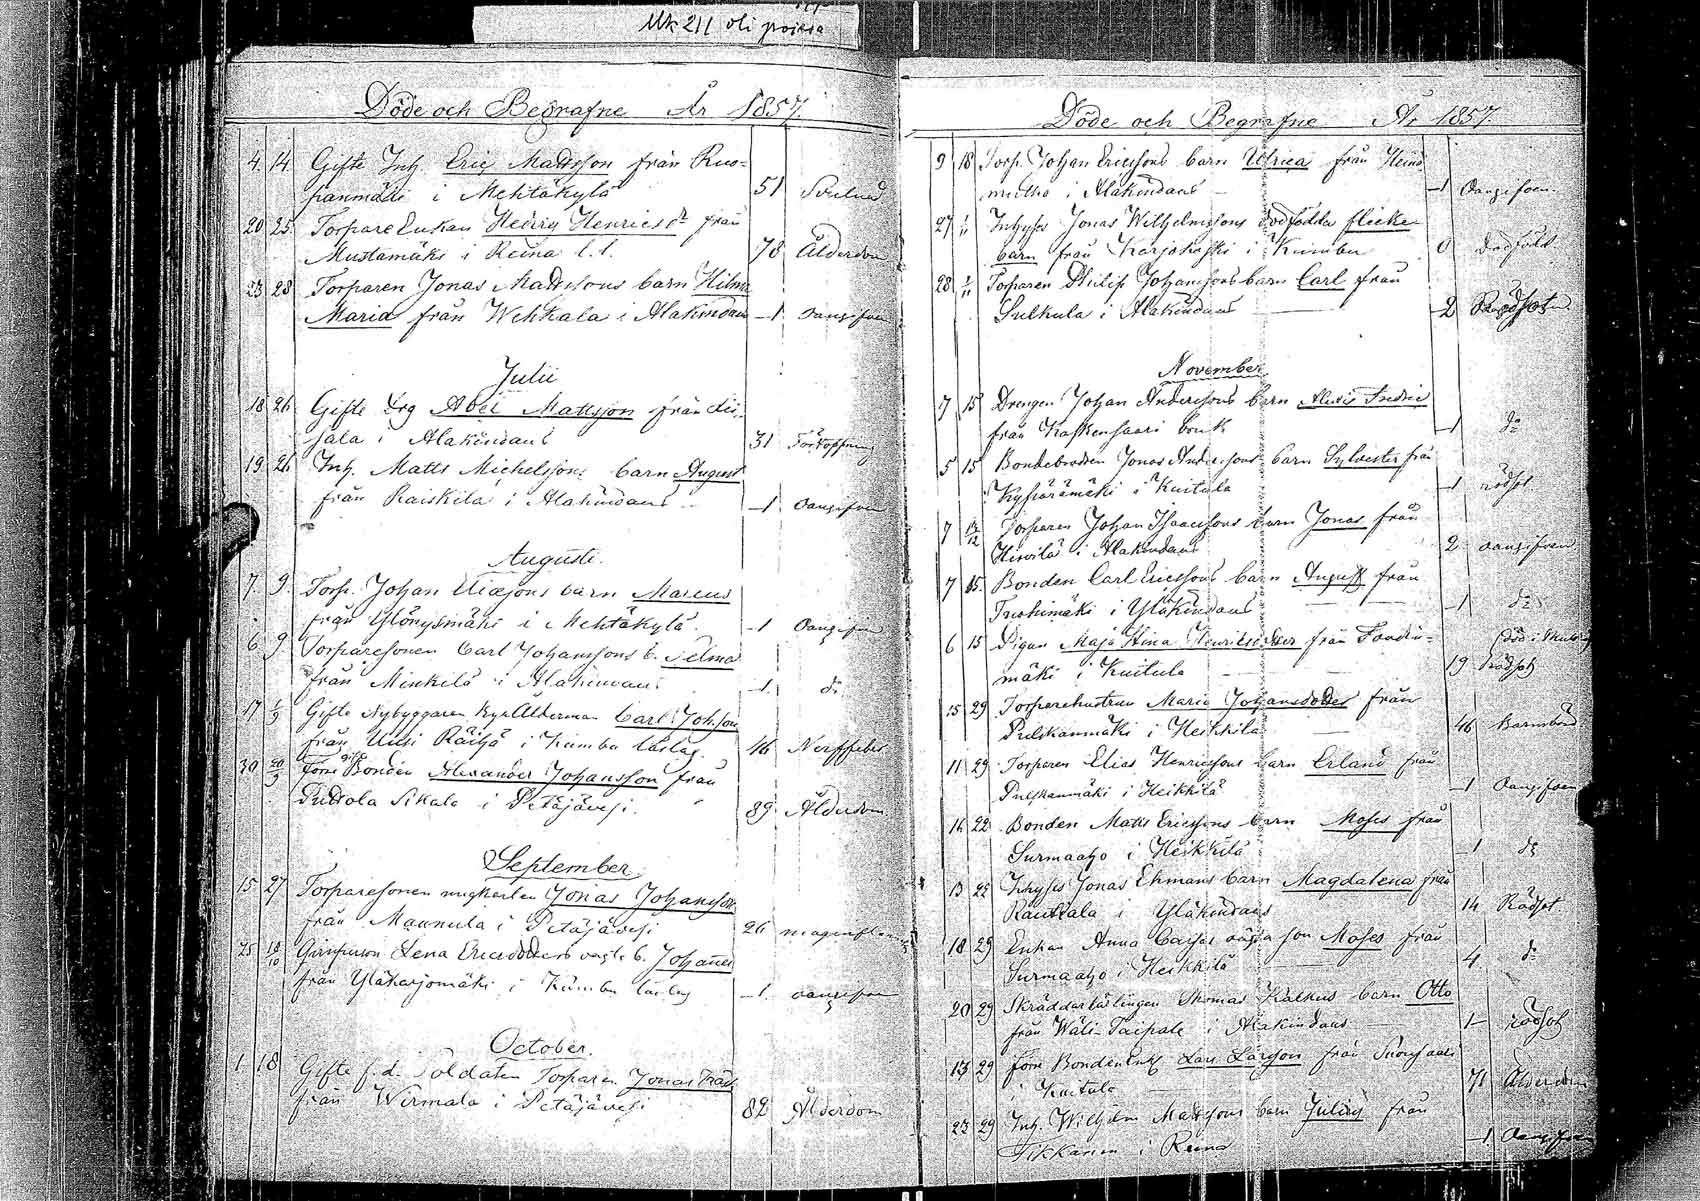 Mk 211 oli poissa
Döde och Begrafne År 1857.
4. 14. Gifte Inh. Eric Mattsson från Ruo-
panmäki i Mehtäkylä 51
20 25 Torpare Enkan Hedvig Henricsdr från
Mustamäki i Reina 78 Ålderdom
23 28 Torparen Jonas Mattssons barn Hilma
Maria från Wehkala i Alakindaus -1 oangifven
Julii
18 26 Gifte Drg Abel Mattsson från Lii-
sala i Alakindaus 31 Förstoppning
19 26 Inh. Matts Michelssons barn August
från Raiskila i Alakindaus -1 oangifven
Auguste.
7. 9. Torp. Johan barn Marcus
från Ylönysmäki i Mehtäkylä -1 Oangifven
6 9. Torparesonen Carl Johanssons b. Selma
från Minkilä i Alakindaus -1. do
17 1/9 Gifte Nybyggaren Kyrkålderman Carl Johsson
från Uusi Räihä i Kumbu 46 Nerffeber
30 20/9 Förre gifte Bonden Alexander Johansson från
Puttola Sikala i Petäjävesi. 89. Ålderdom
September
15 27 Torparesonen ungkarlen Jonas Johansson
från Mannula i Petäjävesi 26
25 10/10 Lena Ericsdotters b. Johannes
från Yläkarjomäki i Kumbu -1. oangifven
October.
1 18 Gifte f.d. Soldaten Torparen Jonas
från Wirmala i Petäjävesi 82 Ålderdom
Döde och Begrafne År 1857.
9 18 Torp. Johan Ericssons barn Ulrica från
i Alakindaus -1 Oangifven
27 Inhyses Jonas Wilhelmssons dödfödda flicke
barn från Karjokoski i Kumbu 0 dödfödd
28 Torparen Philip Johanssons barn Carl från
Sulkula i Alakindaus -2 Rödsot
November
7 15 Drengen Johan Anderssons barn Alexis Fredric
från Koskensaari bruk -1 do
5 15 Jonas Anderssons barn Sylvester från
i Kuitula -1 rödsot
7 Torparen Johan Isaacssons barn Jonas från
Hirvilä i Alakindaus 2 oangifven
7 15. Bonden Carl Ericssons barn August från
i Yläkindaus -1 do
6 15 Pigan Maja Stina Henricsdotter från
mäki i Kuitula 19 Rödsot
15 29 Torparehustrun Maria Johansdotter från
Pulskanmäki i Heikkilä 46 Barnbörd
11 29 Torparen Elias Henricssons barn Erland från
Pulskanmäki i Heikkilä -1 Oangifven
16 22 Bonden Matts Ericssons barn Moses från
Surmaaho i Heikkilä -1 do
13 22 Inhyses Jonas Ehmans barn Magdalena från
Rauttala i Yläkindaus 14 Rödsot.
18 29 Enkan Anna Caisas oägta son Moses från
Surmaaho i Heikkilä 4. do
20 29 Skräddarlärlingen Thomas Kalkus barn Otto
från Wäli-Taipale i Alakindaus 1- rödsot
13 29 förre Bonden Enkl Lars Larsson från
i Kuitula 71 Ålderdom
23 29 Inh. Wilhelm Mattssons barn Julius från
Tikkanen i Reina -1 Oangifven